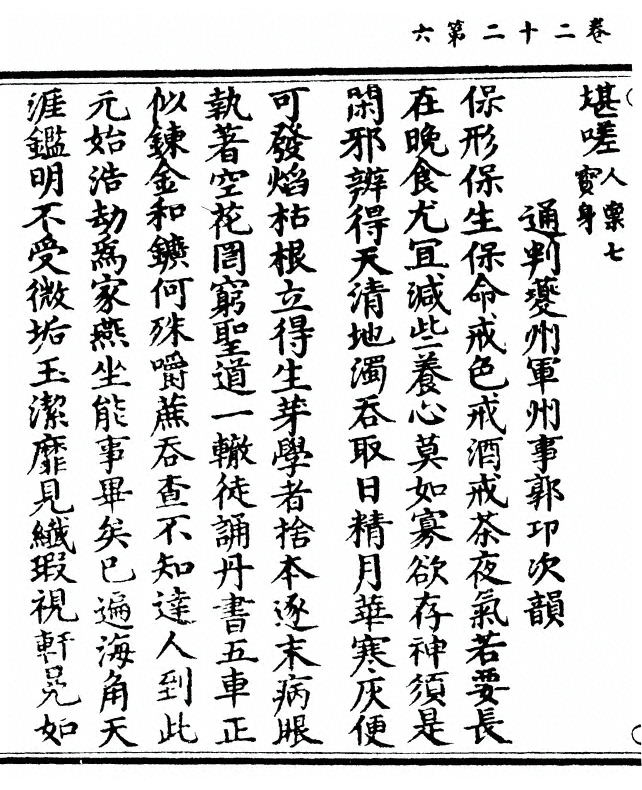 卷二十二第六
堪嗟人稟七寶身
通判夔州軍州事郭卭次韻
保形保生保命戒色戒酒戒茶夜氣若要長
在晚食尤宜減些養心莫如寡欲存神須是
閑邪辨得天清地濁吞取日精月華寒灰便
可發焰枯根立得生芽學者捨本逐末病眼
執著空花罔窮聖道一轍徒誦丹書五車正
似鍊金和鑛何殊嚼蔗吞查不知達人到此
元始浩劫為家燕坐能事畢矣已遍海角天
涯鑑明不受微垢玉潔靡見纖瑕視軒冕如